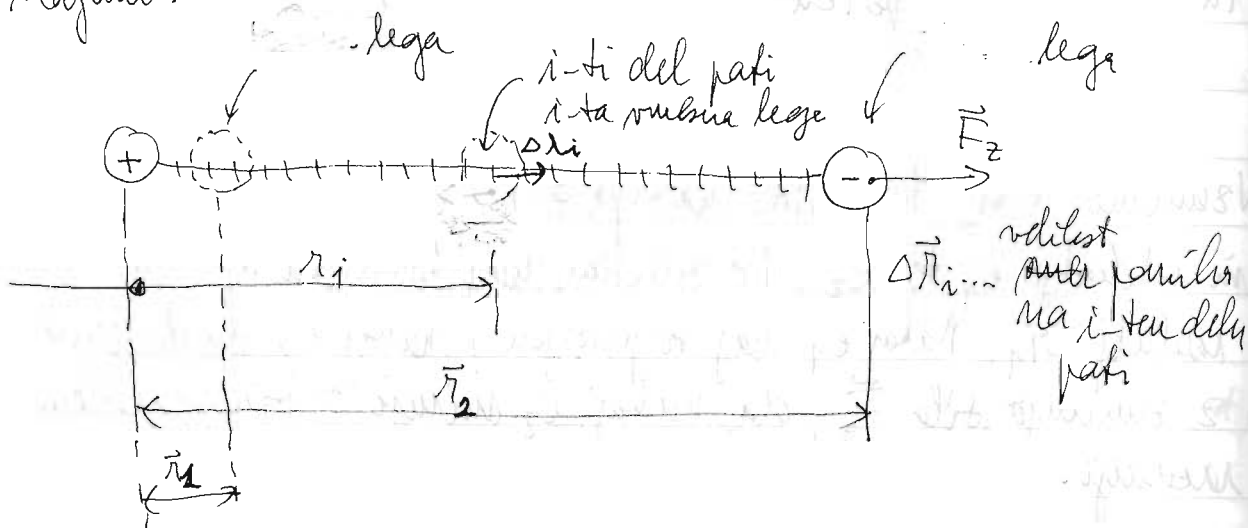 lega
lega
i-ti del poti
i-ta vmesna lega
Δr_i
+
-
F⃗_z
r_i
Δr⃗_i... velikost
premika
na i-tem delu
poti
r⃗_2
r⃗_1